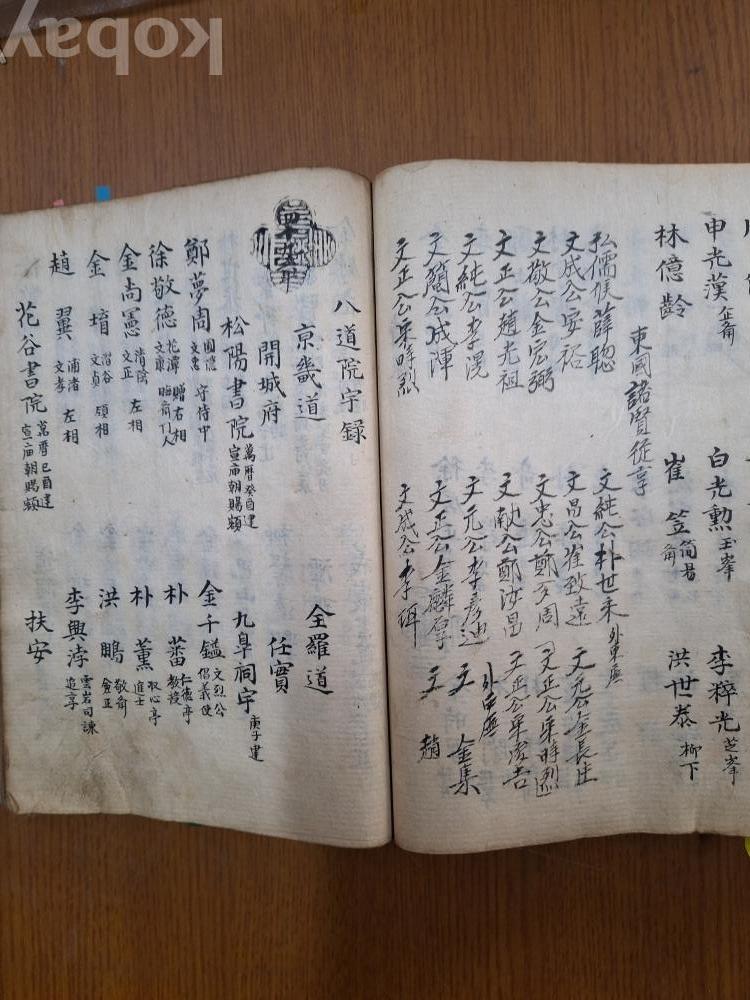 申光漢 企齋
白光勳 玉峯
李粹光 芝峯
林億齡
崔笠 簡易
洪世泰 柳下
東國諸賢從享
弘儒侯薛聰
文純公朴世采
文成公安裕
文昌公崔致遠
文元公金長生
文敬公金宏弼
文忠公鄭夢周
文正公宋時烈
文正公趙光祖
文獻公鄭汝昌
文正公宋浚吉
文純公李滉
文元公李彦迪
文簡公成渾
文正公金麟厚
文 金集
文正公宋時烈
文成公李珥
文 趙
八道院宇錄
京畿道
開城府
松陽書院 萬曆癸酉建 宣庙朝賜額
鄭夢周 圃隱 文忠 守侍中
徐敬德 花潭 文康 贈右相
金尚憲 清陰 文正 左相
金堉 潛谷 文貞 領相
趙翼 浦渚 文孝 左相
花谷書院 萬曆己酉建 宣庙朝賜額
全羅道
任實
九皐祠宇 庚子建
金千鎰 文烈公 倡義使
朴蕃 仁德亭 教授
朴薰 取心亭 進士
洪鵬 敬齋 僉正
李興浡 雲岩 司諫 追享
扶安
kobay